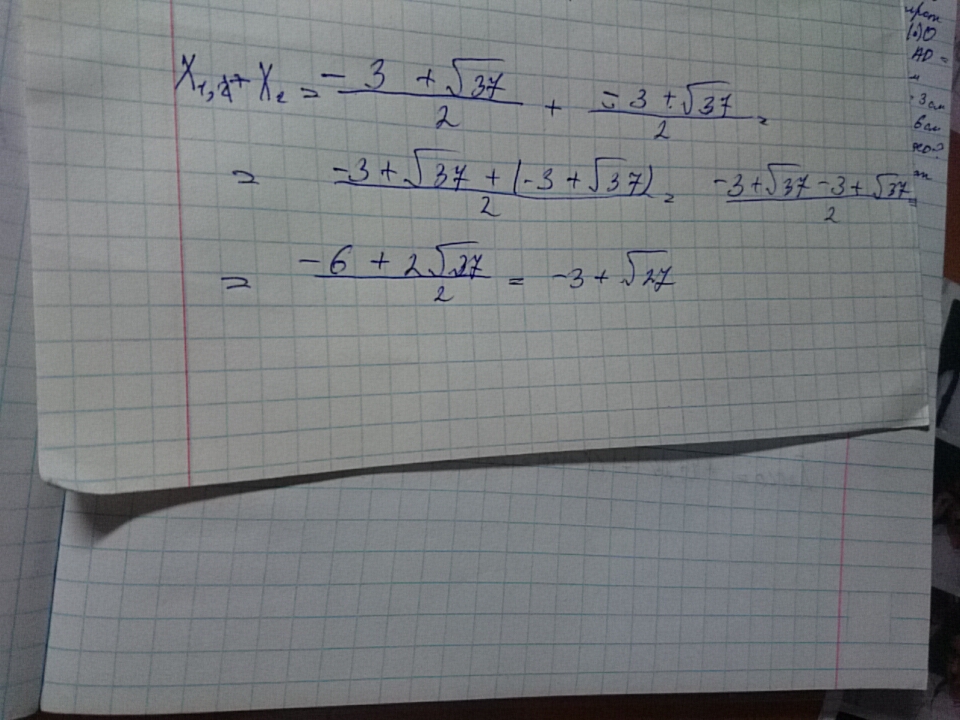 X₁,₂+ X₂ = (-3 + √37)/2 + (-3 + √37)/2 =
= (-3 + √37 + (-3 + √37))/2 = (-3 + √37 - 3 + √37)/2 =
= (-6 + 2√27)/2 = -3 + √27
AD =
3 см
6 см